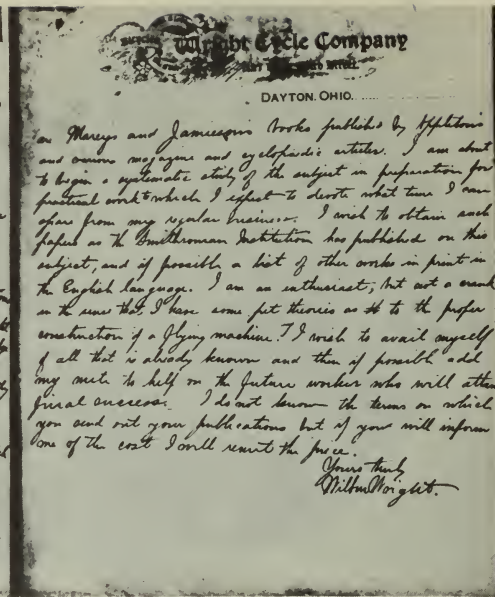 Wright Cycle Company
DAYTON, OHIO.
on Mareys and Jamiesons books published by Appletons
and various magazine and cyclopaedic articles. I am about
to begin a systematic study of the subject in preparation for
practical work to which I expect to devote what time I can
spare from my regular business. I wish to obtain such
papers as the Smithsonian Institution has published on this
subject, and if possible a list of other works in print in
the English language. I am an enthusiast, but not a crank
in the sense that I have some pet theories as to the proper
construction of a flying machine. I wish to avail myself
of all that is already known and then if possible add
my mite to help on the future worker who will attain
final success. I do not know the terms on which
you send out your publications but if you will inform
me of the cost I will remit the price.
Yours truly
Wilbur Wright.